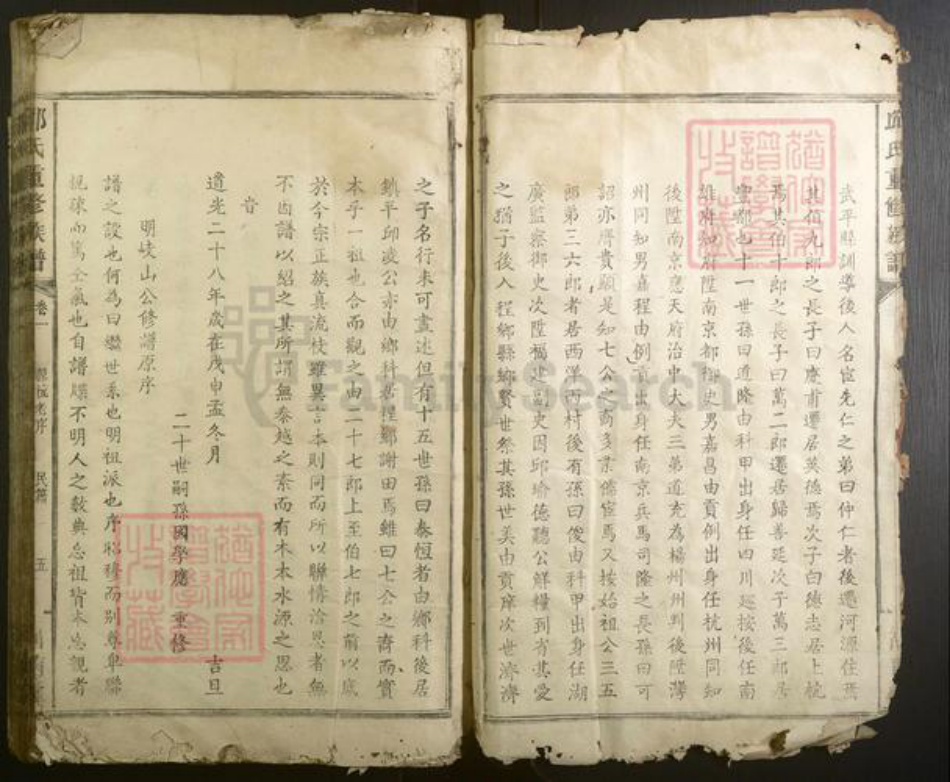 邱氏重修族譜
武平縣訓導後人名宦先仁之弟曰仲仁者後遷河源住焉
其伯九郎之長子曰慶甫遷居英德焉次子曰德志居上杭
焉其伯十郎之長子曰萬二郎遷居歸善延次子萬三郎居
豐都也十一世孫曰道隆由科甲出身任四川巡按後任南
雄府知府陞南京都御史男嘉昌由貢例出身任杭州同知
後陞南京應天府治中大夫三弟道充為楊州州判後陞
州同知男嘉程由例貢出身任南京兵馬司隆之長孫曰可
詔亦膺貴顯是知七公之裔多業儒宦焉又按始祖公三五
郎弟三六郎者居西洋丙村後有孫曰俊由科甲出身任湖
廣監察御史次陞福建副史因邱瑜德聽公鮮糧到省其愛
之猶子後入程鄉縣鄉賢世祭其孫世美由貢庠次世濟濟
之子名行未可盡述但有十五世孫曰泰恆者由鄉科後居
鎮平邱凌公亦由鄉科居程鄉謝田焉雖曰七公之裔而實
本乎一祖也合而觀之由二十七郎上至伯七郎之前以底
於今宗正族真流枝雖異言本則同而所以聯情洽恩者無
不因譜以紹之其所謂無秦越之素而有木本水源之思也
旹
道光二十八年歲在戊申孟冬月 吉旦
二十世嗣孫國學應 重修
明岐山公修譜原序
譜之設也何為曰繼世系也明祖派也序昭穆而别尊卑聯
親疎而篤全氣也自譜牒不明人之斁典忘祖背本忘親者
邱氏重修族譜 卷一 五
FamilySearch